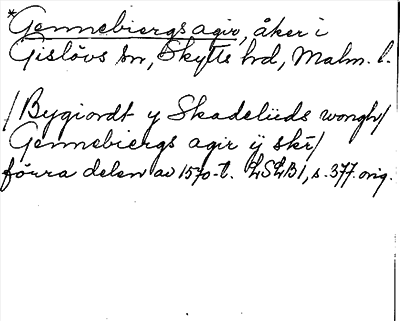 *Gennebiergs agir, åker i
Gislövs sn, Skytts hd, Malm. l.
/Bygiordt y Skadeliids wongh/
Gennebiergs agir ÿ skr̄/
förra delen av 1570-t. LSLB1, s. 377. orig.